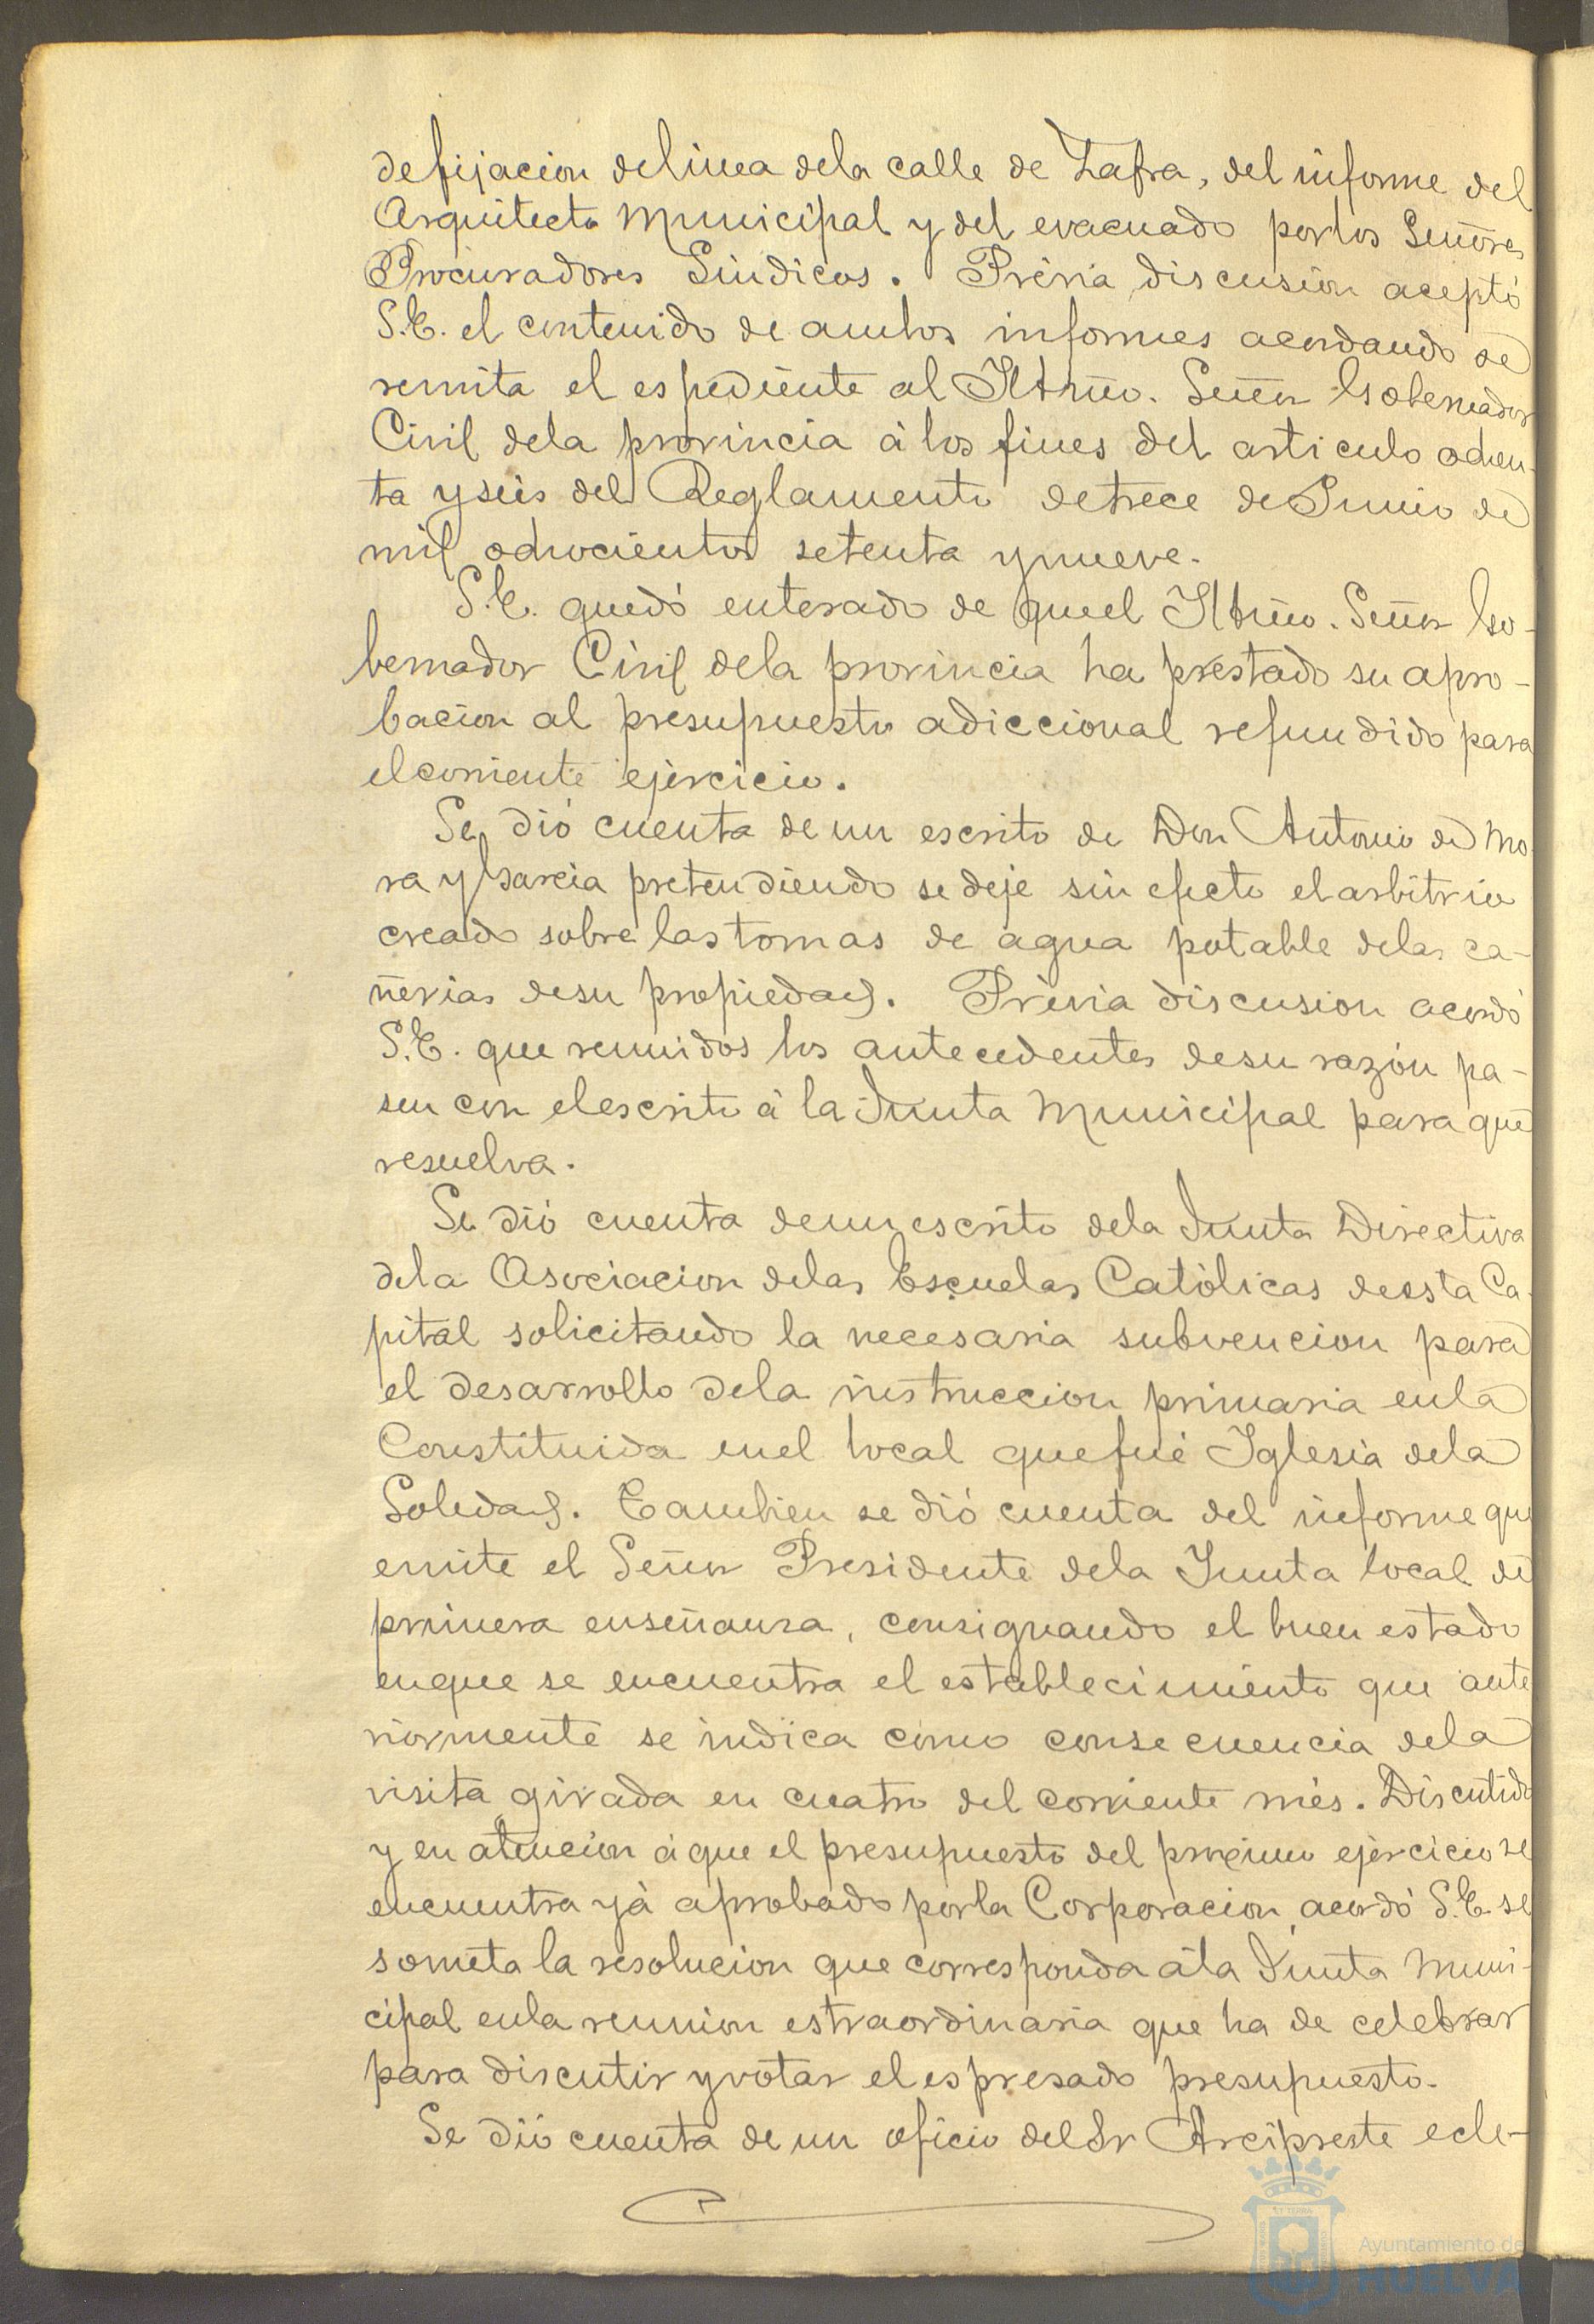 de fijacion de linea de la calle de Zafra, del informe del
Arquitecto Municipal y del evacuado por los Señores
Procuradores Síndicos. Prévia discusión aceptó
S.E. el contenido de ambos informes acordando se
remita el espediente al Iltmo. Señor Gobernador
Civil de la provincia á los fines del articulo ochen-
ta y seis del Reglamento de trece de Junio de
mil ochocientos setenta y nueve.
S.E. quedó enterado de que el Iltmo. Señor Go-
bernador Civil de la provincia ha prestado su apro-
bacion al presupuesto adiccional refundido para
el corriente ejercicio.
Se dió cuenta de un escrito de Don Antonio de Mo
ra y Garcia pretendiendo se deje sin efecto el arbitrio
creado sobre las tomas de agua potable de las ca-
ñerias de su propiedad. Prévia discusion acordó
S.E. que reunidos los antecedentes de su razón pa-
sen con el escrito á la Junta Municipal para que
resuelva.
Se dió cuenta de un escrito de la Junta Directiva
de la Asociacion de las Escuelas Católicas de esta Ca-
pital solicitando la necesaria subvencion para
el desarrollo de la instruccion primaria en la
Constituida en el local que fué Iglesia de la
Soledad. Tambien se dió cuenta del informe que
emite el Señor Presidente de la Junta local de
primera enseñanza, consignando el buen estado
en que se encuentra el establecimiento que ante
riormente se indica como consecuencia de la
visita girada en cuatro del corriente més. Discutido
y en atencion á que el presupuesto del proximo ejercicio se
encuentra yá aprobado por la Corporacion, acordó S.E. se
someta la resolucion que corresponda á la Junta Muni-
cipal en la reunion estraordinaria que ha de celebrar
para discutir y votar el espresado presupuesto.
Se dió cuenta de un oficio del Sr Arcipreste ecle-
Ayuntamiento de
HUELVA